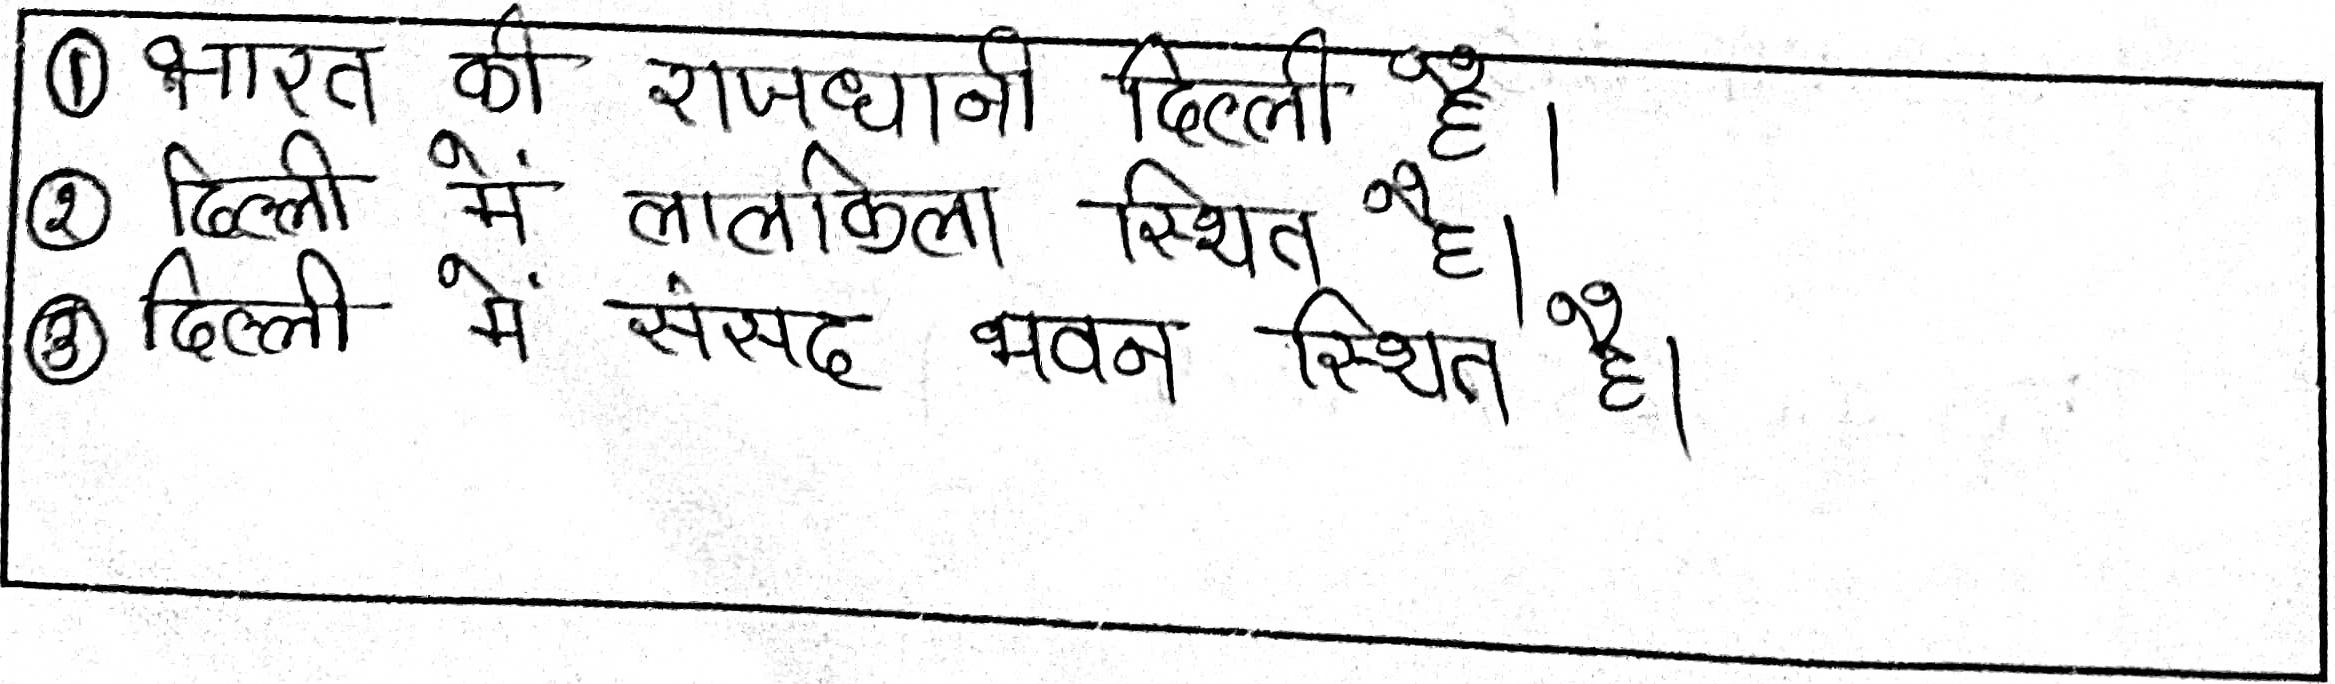 ① भारत की राजधानी दिल्ली है।
② दिल्ली में लालकिला स्थित है।
③ दिल्ली में संसद भवन स्थित है।